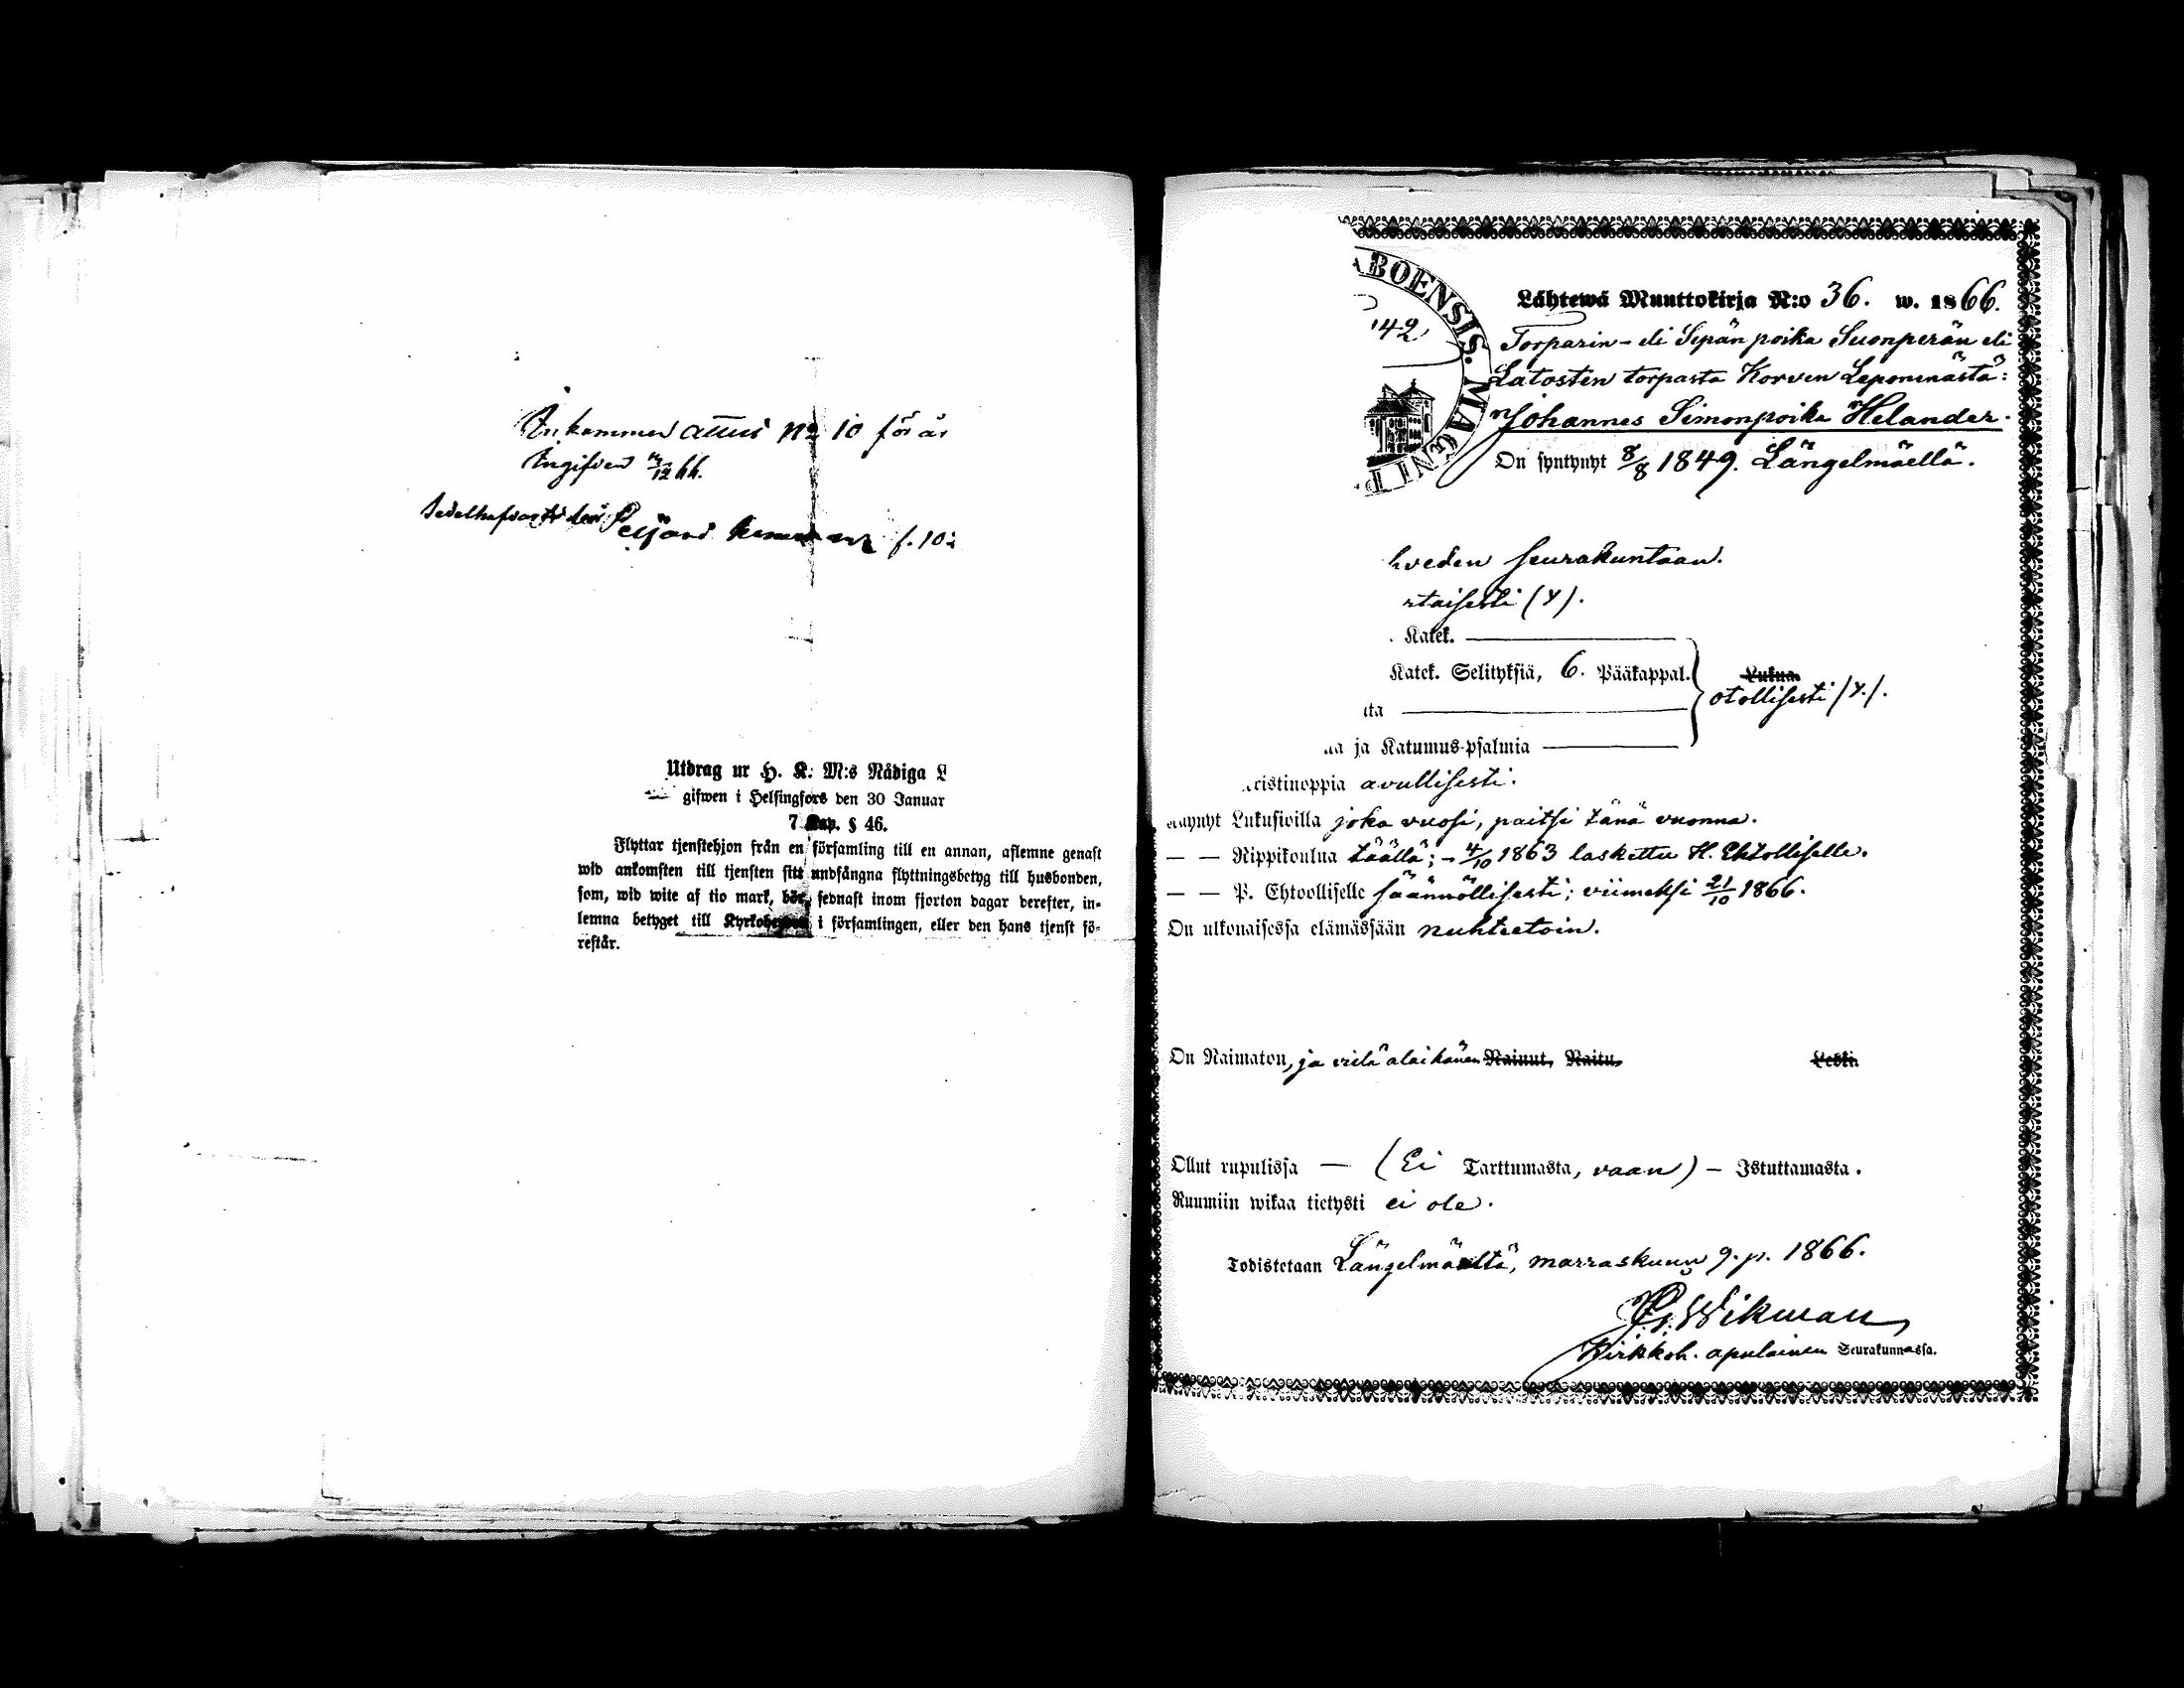 Ankommen attest No 10 för år
Ingifven 66.
f. 10
Utdrag ur H. K. M:s Nådiga L
gifwen i Helsingfors den 30 Januar
7 Kap. § 46.
Flyttar tjenstehjon från en församling till en annan, aflemne genast
wid ankomsten till tjensten sitt undfångna flyttningsbetyg till husbonden,
som, wid wite af tio mark, bör, sednast inom fjorton dagar derefter, in-
lemna betyget till i församlingen, eller den hans tjenst fö-
restår.
ABOENSIS. MAGNI P
142
Lähtewä Muuttokirja N:o 36. w. 1866.
Torparin- eli Sepän poika Suonperän eli
Latosten torpasta Korven Leponmästä:
Johannes Simonpoika Helander.
On syntynyt 8/8 1849. Längelmäellä.
hveden seurakuntaan.
rtaisesti (Y).
. Katek.
Katek. Selityksiä, 6. Pääkappal.
Lukua.
otollisesti /Y./.
ta
na ja Katumus-psalmia
ristinoppia avullisesti.
äynyt Lukusioilla joka vuosi, paitsi tänä vuonna.
— — Rippikoulua täällä; - 4/10 1863 laskettu H. Ehtolliselle.
— — P. Ehtoolliselle säännöllisesti; viimeksi 21/10 1866.
On ulkonaisessa elämässään nuhteetoin.
On Naimaton, ja vielä alaikänen Nainut, Naitu, Leski.
Ollut rupulissa — (Ei Tarttumasta, vaan) — Istuttamasta.
Ruumiin wikaa tietysti ei ole.
Todistetaan Längelmäeltä, marraskuun 9. p. 1866.
Wikman
Kirkkoh. apulainen Seurakunnassa.